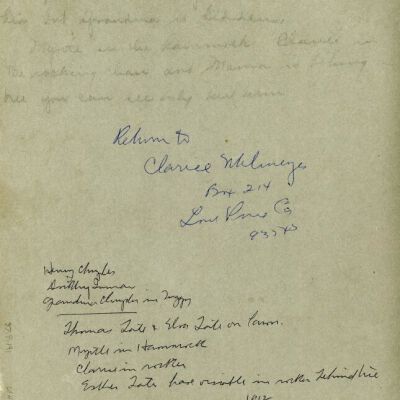 but Grandma is hidden.
Myrtle in the hammock Clarice in
the rocking chair and Mama is behind
tree you can see only her arm
Return to
Clarice
Box 214
Lone Pine Ca
93545
Henry
Dorothy
Grandma in buggy
Thomas Tate & Tate on lawn.
Myrtle in Hammock
Clarice in rocker
Esther Tate visible in rocker behind tree
1912